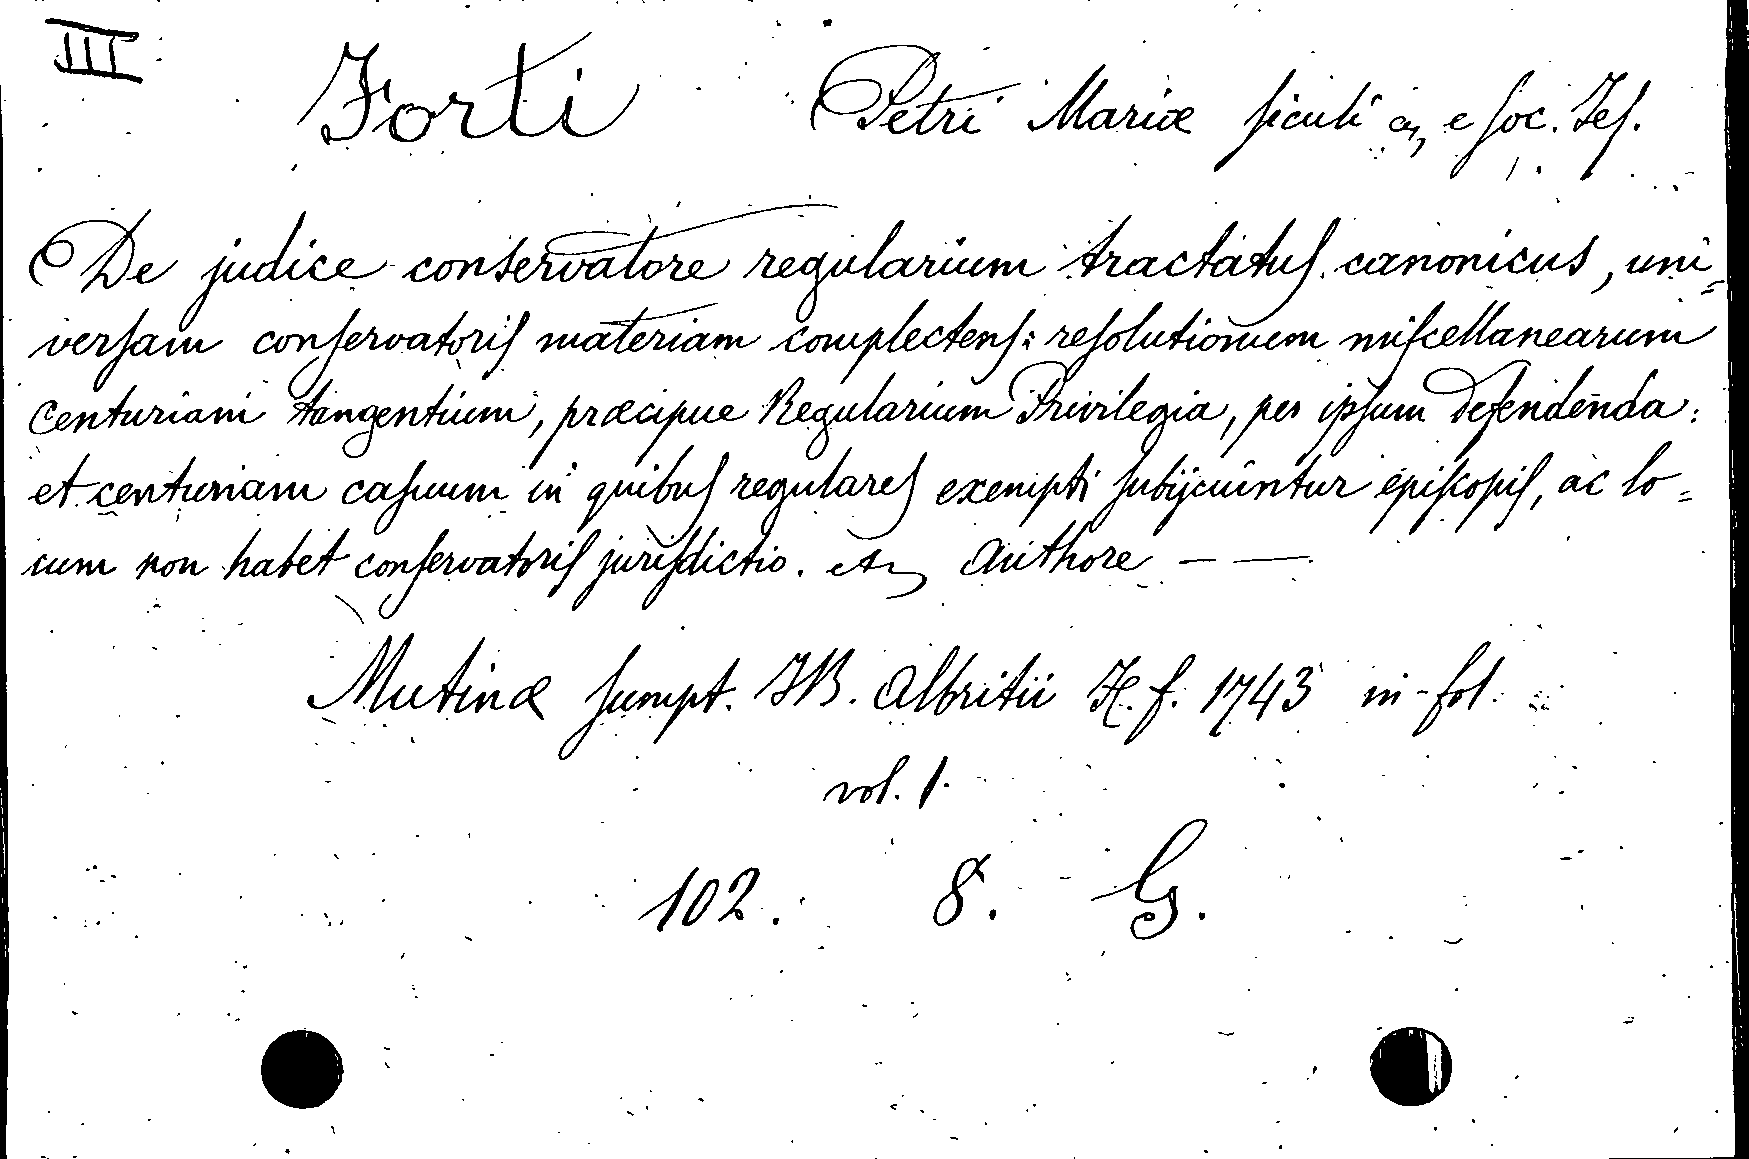 III
Forti Petri Mariæ siculi &, e Soc. Jes.
De judice conservatore regularium tractatus canonicus, uni=
versam conservatoris materiam complectens: resolutionum miscellanearum
centuriam tangentium, præcipue Regularium Privilegia, per ipsum defendenda:
et centuriam casuum in quibus regulares exempti subijcuintur episcopis, ac lo=
cum non habet conservatoris jurisdictio. etc authore — —
Mutinæ sumpt. JB. Albritii H. f. 1743 in-fol.
vol. 1.
102. 8. G.